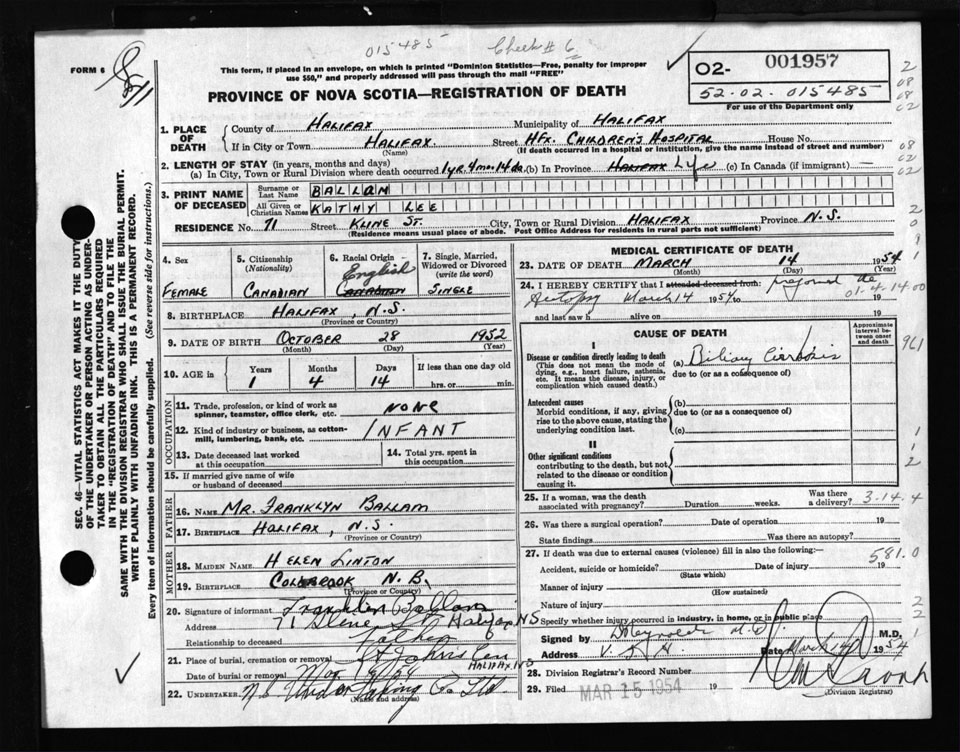 015485 Check # 6
FORM 6
This form, if placed in an envelope, on which is printed "Dominion Statistics—Free, penalty for improper
use $50," and properly addressed will pass through the mail "FREE"
O2- 001957
52.02. 015485
For use of the Department only
PROVINCE OF NOVA SCOTIA—REGISTRATION OF DEATH
1. PLACE OF DEATH { County of HALIFAX Municipality of HALIFAX
If in City or Town HALIFAX. Street HFX. CHILDREN'S HOSPITAL House No.
(Name) (If death occurred in a hospital or institution, give the name instead of street and number)
2. LENGTH OF STAY (in years, months and days)
(a) In City, Town or Rural Division where death occurred 1 yr 4 mo. 14 da. (b) In Province HALIFAX Life (c) In Canada (if immigrant) —
3. PRINT NAME OF DECEASED { Surname or Last Name BALLAM
All Given or Christian Names KATHY LEE
RESIDENCE No. 71 Street KLINE ST. City, Town or Rural Division HALIFAX Province N.S.
(Residence means usual place of abode. Post Office Address for residents in rural parts not sufficient)
4. Sex FEMALE
5. Citizenship (Nationality) CANADIAN
6. Racial Origin English CANADIAN
7. Single, Married, Widowed or Divorced (write the word) SINGLE
8. BIRTHPLACE HALIFAX, N.S.
(Province or Country)
9. DATE OF BIRTH OCTOBER 28 1952
(Month) (Day) (Year)
10. AGE in Years 1 Months 4 Days 14 If less than one day old hrs. or min.
OCCUPATION
11. Trade, profession, or kind of work as spinner, teamster, office clerk, etc. NONE
12. Kind of industry or business, as cotten-mill, lumbering, bank, etc. INFANT
13. Date deceased last worked at this occupation
14. Total yrs. spent in this occupation
15. If married give name of wife or husband of deceased
FATHER
16. NAME MR. FRANKLYN BALLAM
17. BIRTHPLACE HALIFAX, N.S.
(Province or Country)
MOTHER
18. MAIDEN NAME HELEN LINTON
19. BIRTHPLACE COLEBROOK N.B.
(Province or Country)
20. Signature of informant Franklin Ballam
Address 71 St. Halifax NS
Relationship to deceased Father
21. Place of burial, cremation or removal St Johns Cem HALIFAX NS
Date of burial or removal Mar 54
22. UNDERTAKER N.S Undertaking Co Ltd
(Name and address)
MEDICAL CERTIFICATE OF DEATH
23. DATE OF DEATH MARCH 14 1954
(Month) (Day) (Year)
24. I HEREBY CERTIFY that I attended deceased from: preformed an
Autopsy March 14 1954 to 19
01.4.14.00
and last saw h alive on 19
CAUSE OF DEATH
Approximate interval between onset and death
I
Disease or condition directly leading to death (a) Biliary Cirrhosis
(This does not mean the mode of dying, e.g., heart failure, asthenia, etc. It means the disease, injury, or complication which caused death.)
due to (or as a consequence of)
Antecedent causes
Morbid conditions, if any, giving rise to the above cause, stating the underlying condition last.
(b)
due to (or as a consequence of)
(c)
II
Other significant conditions
contributing to the death, but not related to the disease or condition causing it.
25. If a woman, was the death associated with pregnancy? Duration weeks. Was there a delivery?
3-14.4
26. Was there a surgical operation? Date of operation 19
State findings Was there an autopsy?
27. If death was due to external causes (violence) fill in also the following:—
581.0
Accident, suicide or homicide? Date of injury 19
(State which)
Manner of injury
(How sustained)
Nature of injury
Specify whether injury occurred in industry, in home, or in public place
Signed by Reynolds M.D. M.D.
Address V. G. H. Date March 14 1954
28. Division Registrar's Record Number
29. Filed MAR 15 1954 19
(Division Registrar)
SEC. 46—VITAL STATISTICS ACT MAKES IT THE DUTY
OF THE UNDERTAKER OR PERSON ACTING AS UNDER-
TAKER TO OBTAIN ALL THE PARTICULARS REQUIRED
IN THE "REGISTRATION OF DEATH" AND TO FILE THE
SAME WITH THE DIVISION REGISTRAR WHO SHALL ISSUE THE BURIAL PERMIT.
WRITE PLAINLY WITH UNFADING INK. THIS IS A PERMANENT RECORD.
Every item of information should be carefully supplied. (See reverse side for instructions.)
2
08
08
02
08
02
02
2
0
9
1
961
1
1
2
2
2
1